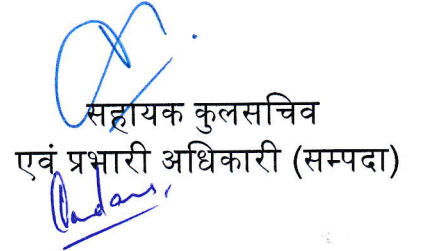 सहायक कुलसचिव
एवं प्रभारी अधिकारी (सम्पदा)